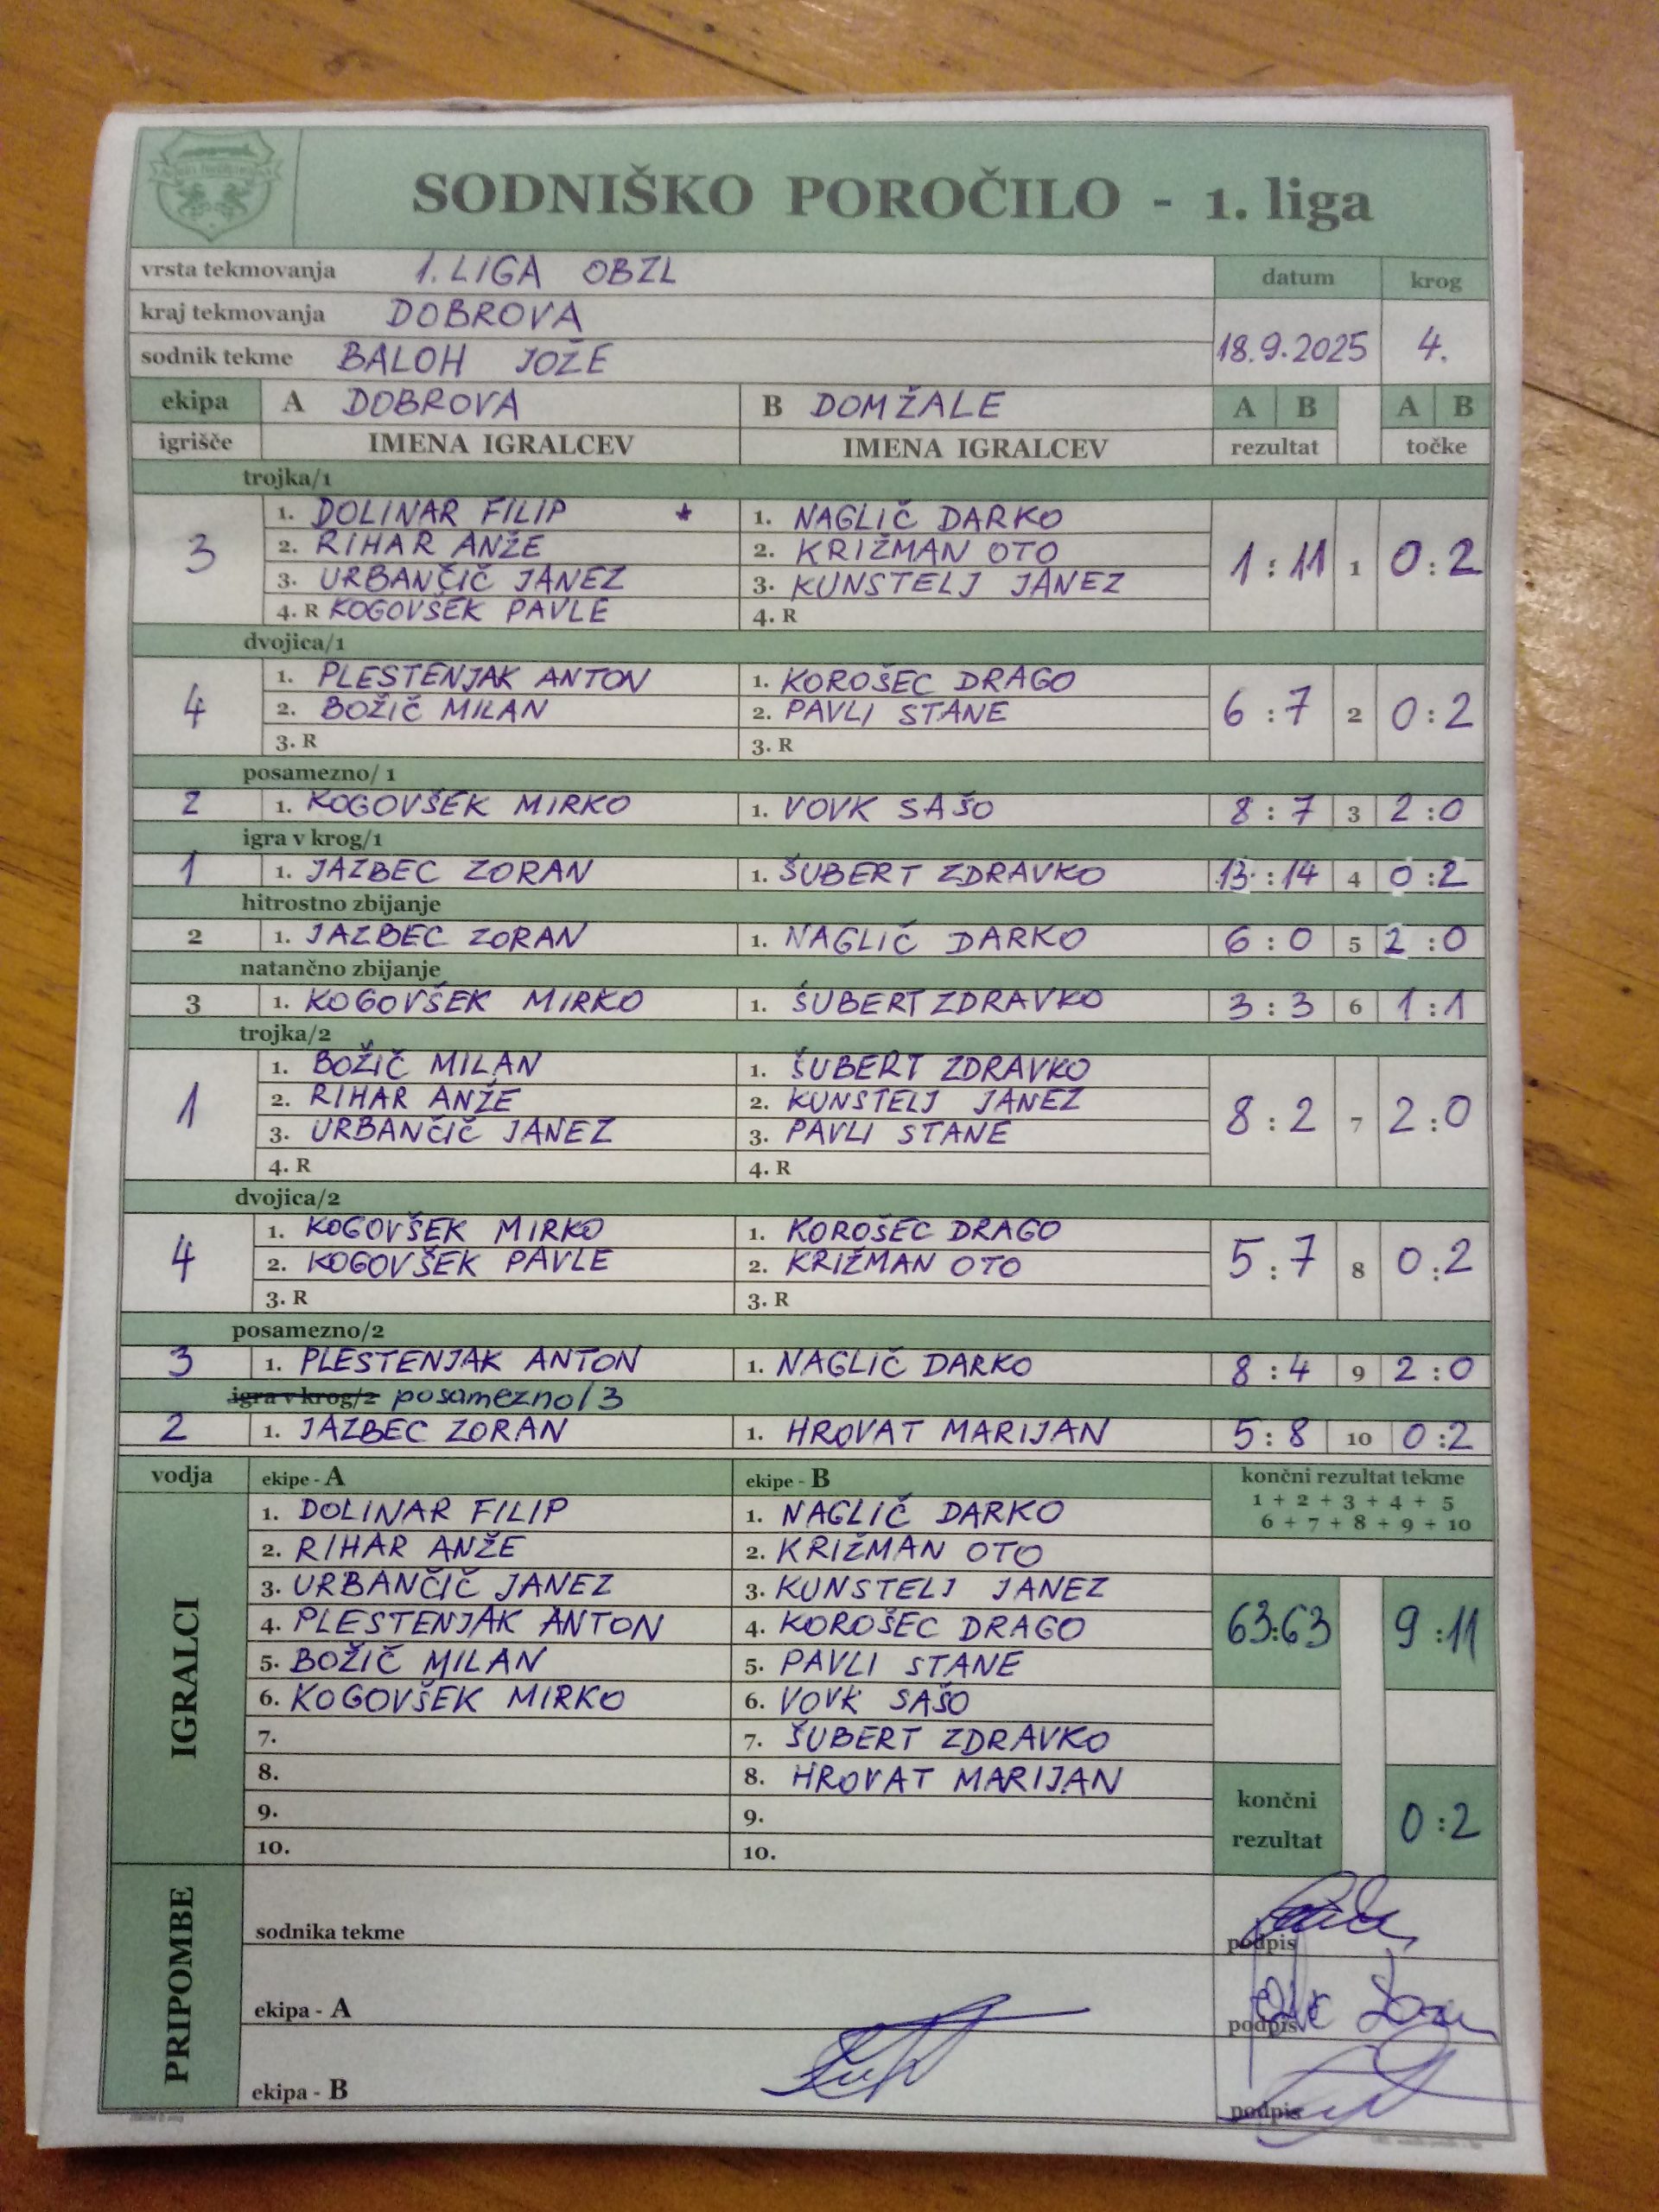 SODNIŠKO POROČILO - 1. liga
vrsta tekmovanja 1. LIGA OBZL datum krog
kraj tekmovanja DOBROVA
sodnik tekme BALOH JOŽE 18.9.2025 4.
ekipa A DOBROVA B DOMŽALE A B A B
igrišče IMENA IGRALCEV IMENA IGRALCEV rezultat točke
trojka/1
1. DOLINAR FILIP * 1. NAGLIČ DARKO
3 2. RIHAR ANŽE 2. KRIŽMAN OTO 1 : 11 1 0 : 2
3. URBANČIČ JANEZ 3. KUNSTELJ JANEZ
4. R KOGOVŠEK PAVLE 4. R
dvojica/1
1. PLESTENJAK ANTON 1. KOROŠEC DRAGO
4 2. BOŽIČ MILAN 2. PAVLI STANE 6 : 7 2 0 : 2
3. R 3. R
posamezno/ 1
2 1. KOGOVŠEK MIRKO 1. VOVK SAŠO 8 : 7 3 2 : 0
igra v krog/1
1 1. JAZBEC ZORAN 1. ŠUBERT ZDRAVKO 13 : 14 4 0 : 2
hitrostno zbijanje
2 1. JAZBEC ZORAN 1. NAGLIČ DARKO 6 : 0 5 2 : 0
natančno zbijanje
3 1. KOGOVŠEK MIRKO 1. ŠUBERT ZDRAVKO 3 : 3 6 1 : 1
trojka/2
1. BOŽIČ MILAN 1. ŠUBERT ZDRAVKO
1 2. RIHAR ANŽE 2. KUNSTELJ JANEZ 8 : 2 7 2 : 0
3. URBANČIČ JANEZ 3. PAVLI STANE
4. R 4. R
dvojica/2
1. KOGOVŠEK MIRKO 1. KOROŠEC DRAGO
4 2. KOGOVŠEK PAVLE 2. KRIŽMAN OTO 5 : 7 8 0 : 2
3. R 3. R
posamezno/2
3 1. PLESTENJAK ANTON 1. NAGLIČ DARKO 8 : 4 9 2 : 0
igra v krog/2 posamezno/3
2 1. JAZBEC ZORAN 1. HROVAT MARIJAN 5 : 8 10 0 : 2
vodja ekipe - A ekipe - B končni rezultat tekme
1 + 2 + 3 + 4 + 5
6 + 7 + 8 + 9 + 10
IGRALCI
1. DOLINAR FILIP 1. NAGLIČ DARKO
2. RIHAR ANŽE 2. KRIŽMAN OTO
3. URBANČIČ JANEZ 3. KUNSTELJ JANEZ
4. PLESTENJAK ANTON 4. KOROŠEC DRAGO 63:63 9 : 11
5. BOŽIČ MILAN 5. PAVLI STANE
6. KOGOVŠEK MIRKO 6. VOVK SAŠO
7. 7. ŠUBERT ZDRAVKO
8. 8. HROVAT MARIJAN
9. 9. končni
10. 10. rezultat 0 : 2
PRIPOMBE
sodnika tekme podpis
ekipa - A podpis
ekipa - B podpis